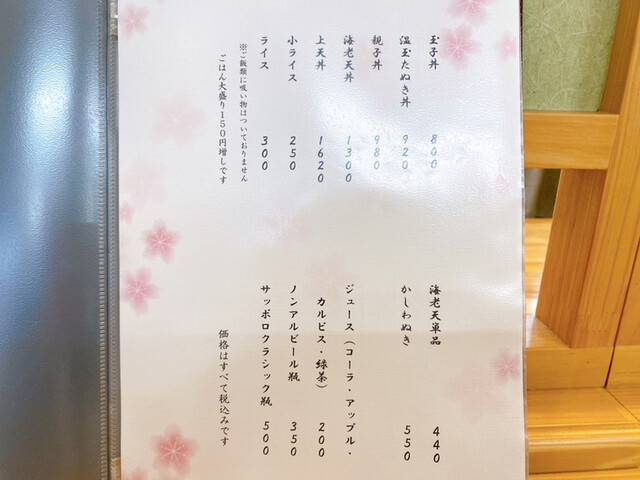 玉子丼 800
温玉たぬき丼 920
親子丼 980
海老天丼 1300
上天丼 1620
小ライス 250
ライス 300
※ご飯類に吸い物はついておりません
ごはん大盛り150円増しです
海老天単品 440
かしわぬき 550
ジュース（コーラ・アップル・
カルピス・緑茶） 200
ノンアルビール瓶 350
サッポロクラシック瓶 500
価格はすべて税込みです